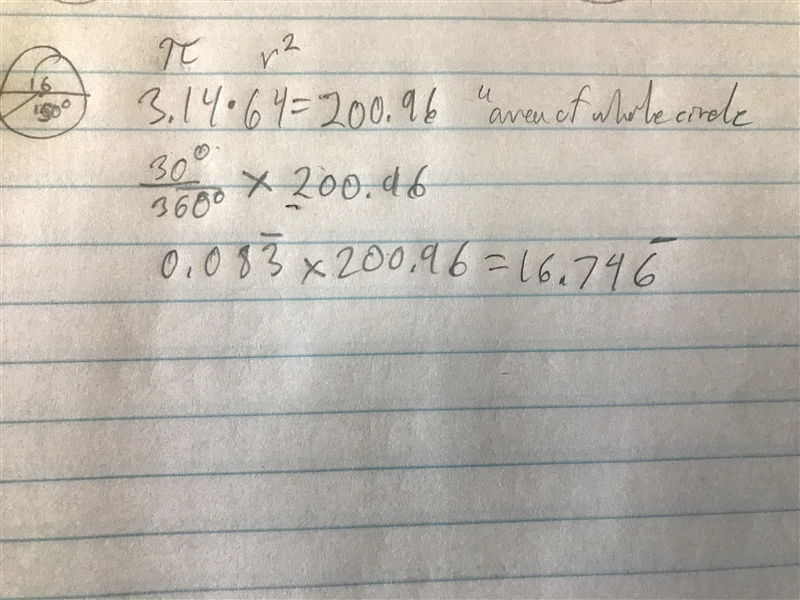 π r²
16
150°
3.14·64=200.96 "area of whole circle
30°/360° × 200.96
0.083̅ × 200.96 = 16.746̅